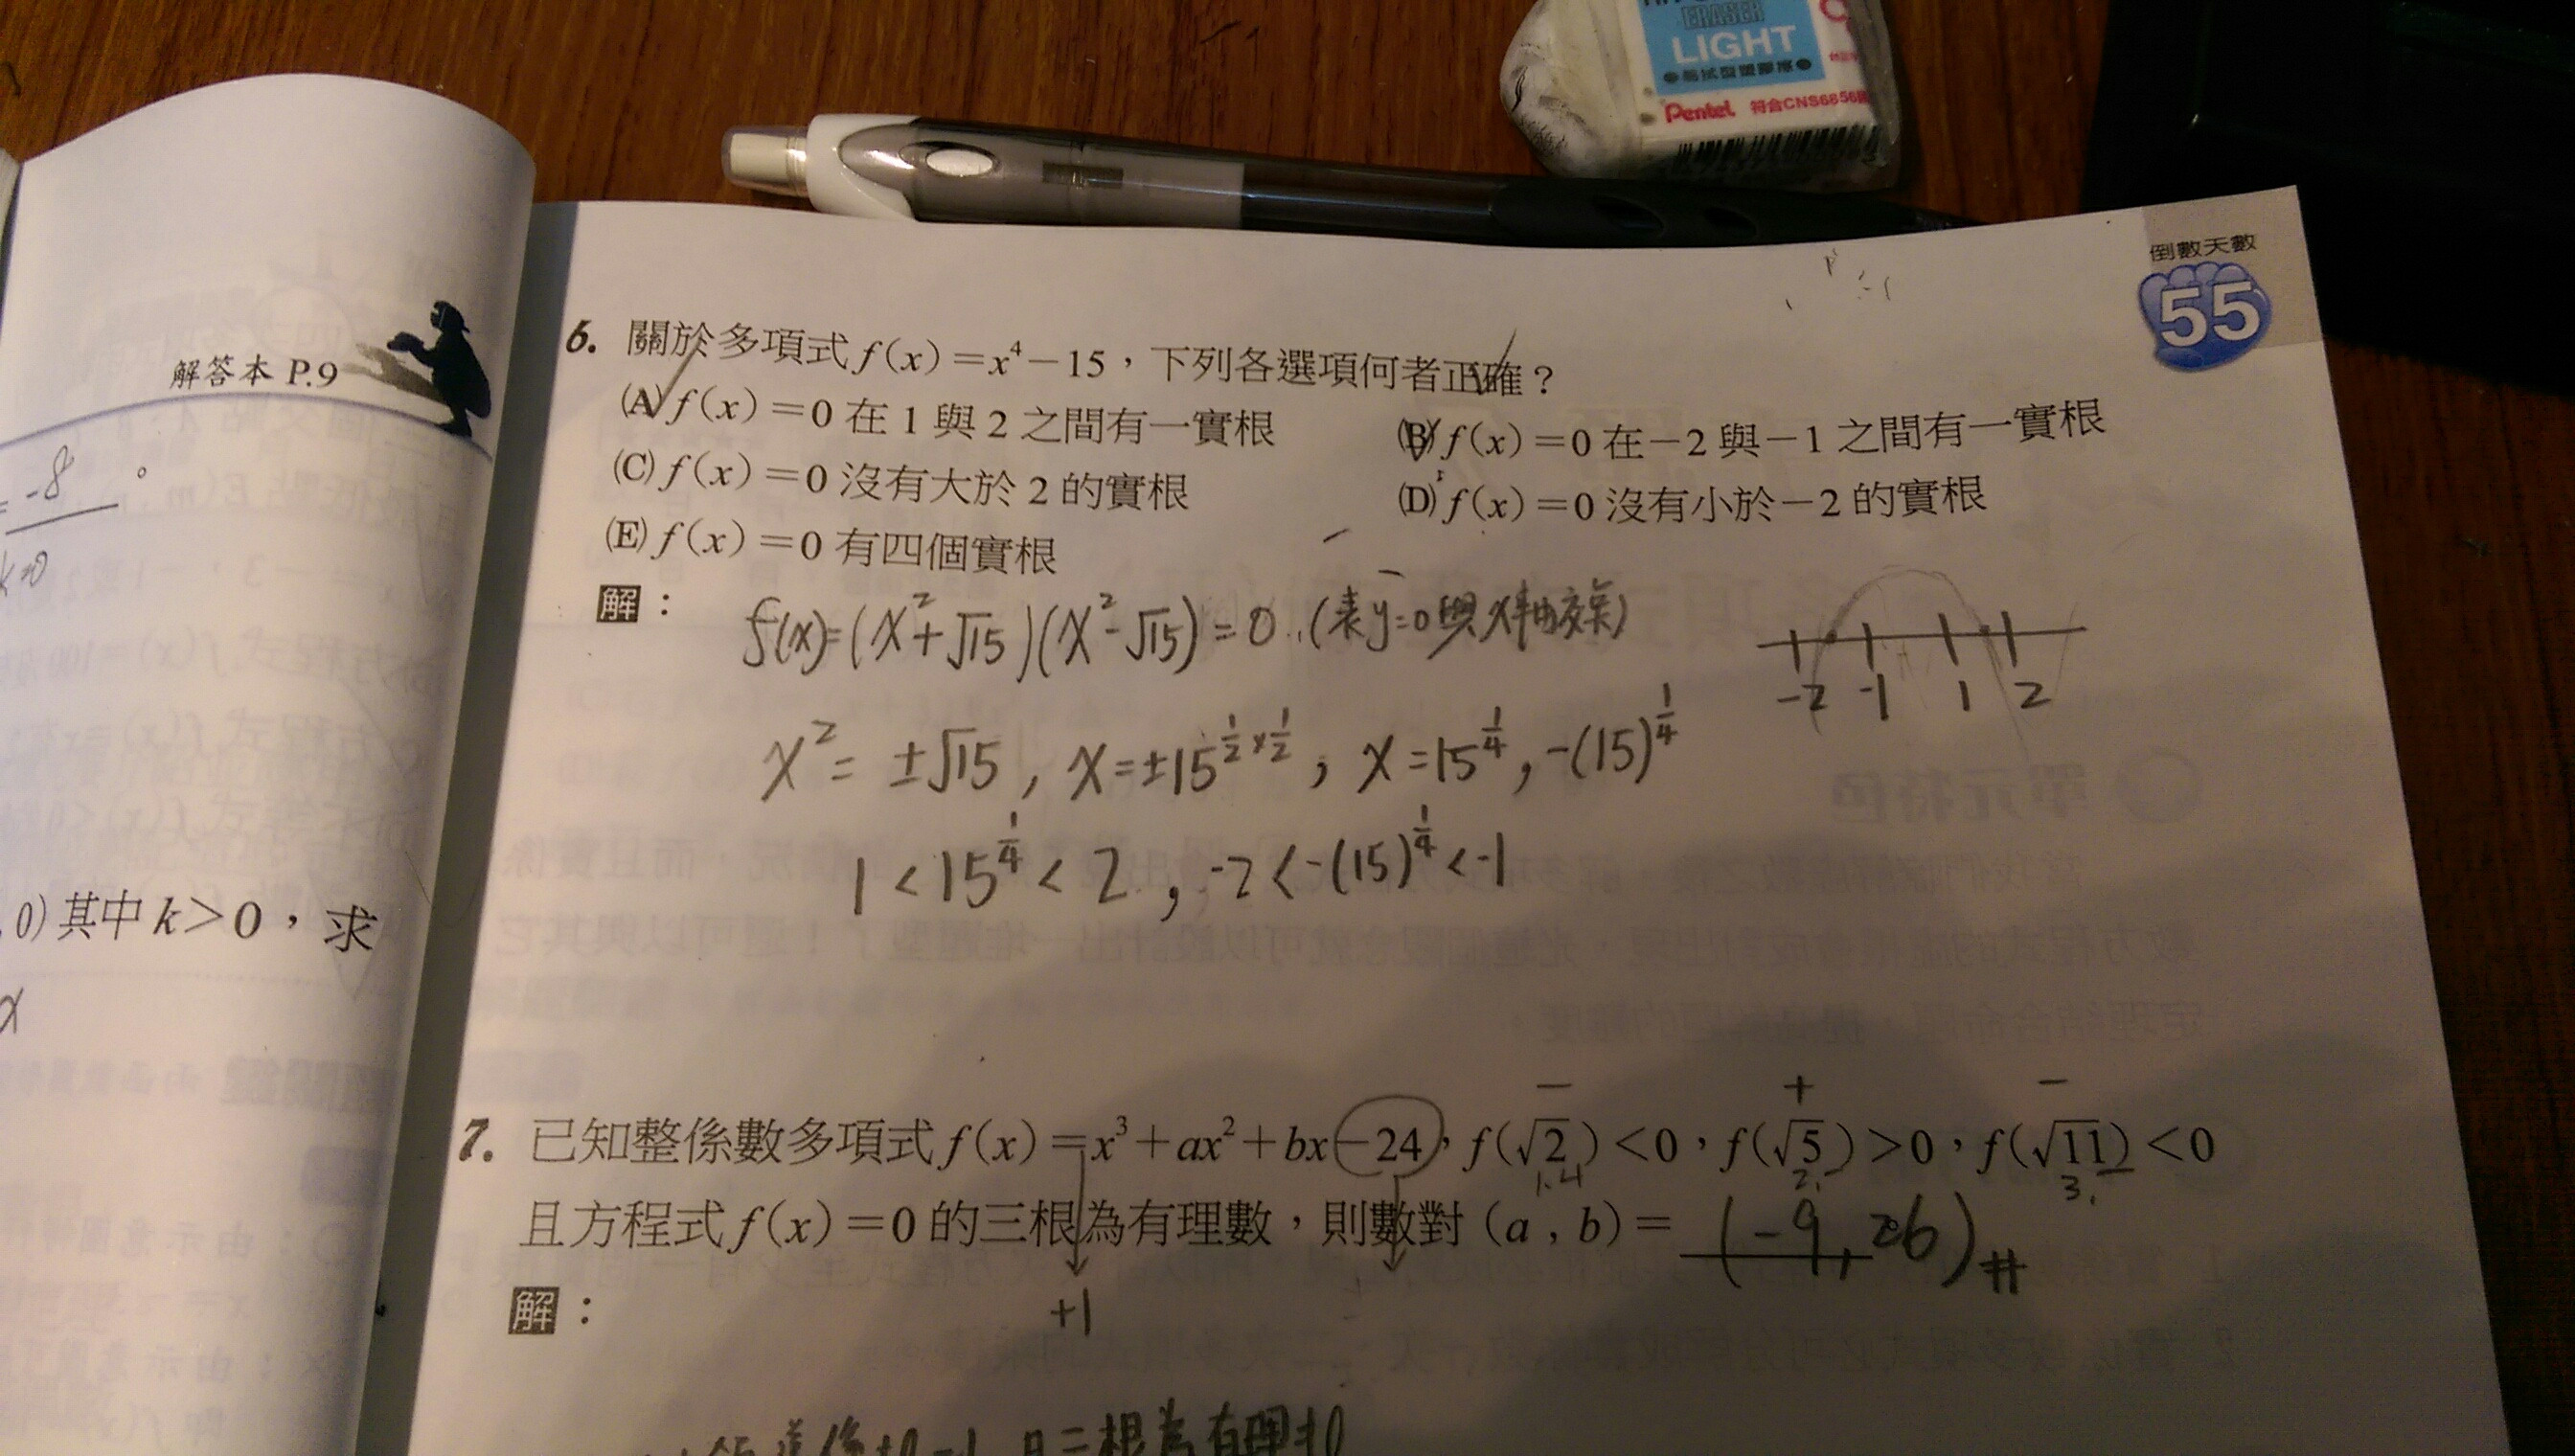 ERASER
LIGHT
易拭型塑膠擦
Pentel 符合CNS6856
倒數天數
55
解答本 P.9
= -8 。
k≠0
, 0) 其中 k＞0，求
x
6. 關於多項式 f(x)＝x⁴－15，下列各選項何者正確？
(A) f(x)＝0 在 1 與 2 之間有一實根
(B) f(x)＝0 在－2 與－1 之間有一實根
(C) f(x)＝0 沒有大於 2 的實根
(D) f(x)＝0 沒有小於－2 的實根
(E) f(x)＝0 有四個實根
解：
f(x)=(x²+√15)(x²-√15)=0 (表y=0與x軸交集)
-2 -1 1 2
x² = ±√15, x=±15^(1/2×1/2), x=15^(1/4), -(15)^(1/4)
1 < 15^(1/4) < 2, -2 < -(15)^(1/4) < -1
- + -
7. 已知整係數多項式 f(x)＝x³＋ax²＋bx－24，f(√2)＜0，f(√5)＞0，f(√11)＜0
1.4 2. 3.
且方程式 f(x)＝0 的三根為有理數，則數對 (a , b)＝ (-9, 26)#
解：
+1
三根為有理